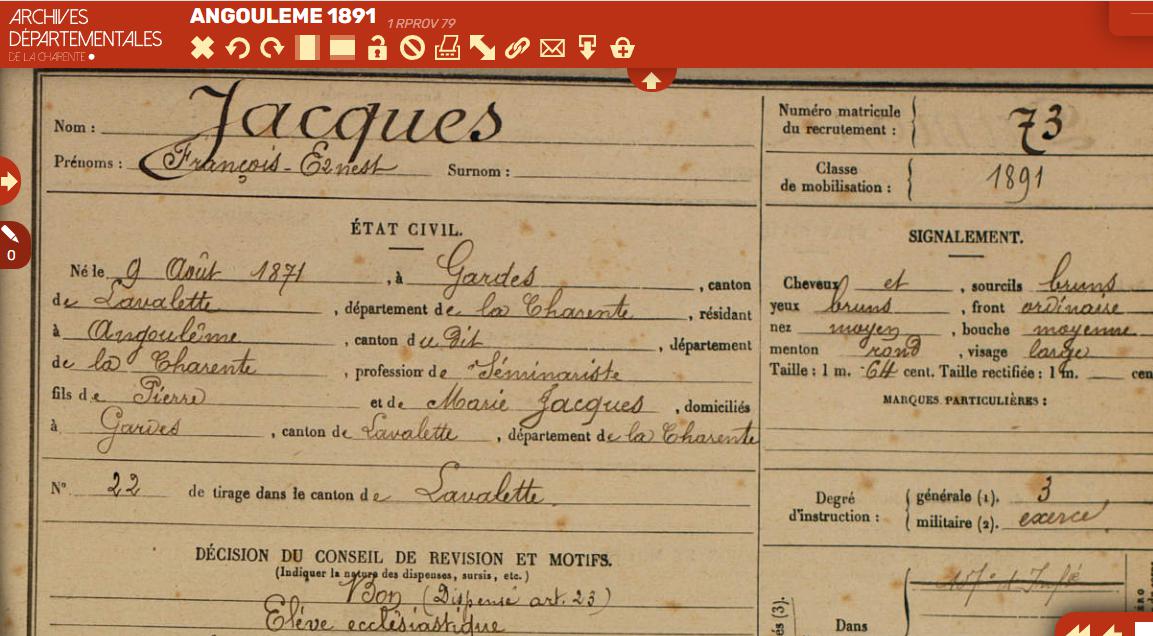 ARCHIVES
DÉPARTEMENTALES
DE LA CHARENTE
ANGOULEME 1891 1 RPROV 79
0
Nom : Jacques
Prénoms : François-Ernest Surnom :
Numéro matricule du recrutement : 73
Classe de mobilisation : 1891
ÉTAT CIVIL.
Né le 9 Août 1871, à Gardes, canton
de Lavalette, département de la Charente, résidant
à Angoulême, canton du dit, département
de la Charente, profession de Séminariste
fils de Pierre et de Marie Jacques, domiciliés
à Gardes, canton de Lavalette, département de la Charente
N° 22 de tirage dans le canton de Lavalette.
DÉCISION DU CONSEIL DE REVISION ET MOTIFS.
(Indiquer la nature des dispenses, sursis, etc.)
Bon (Dispensé art. 23)
Elève ecclésiastique
SIGNALEMENT.
Cheveux et, sourcils bruns
yeux bruns, front ordinaire
nez moyen, bouche moyenne
menton rond, visage large
Taille : 1 m. 64 cent. Taille rectifiée : 1 m. cen
MARQUES PARTICULIÈRES :
Degré d'instruction : générale (1). 3
militaire (2). exercé
és (3).
Dans